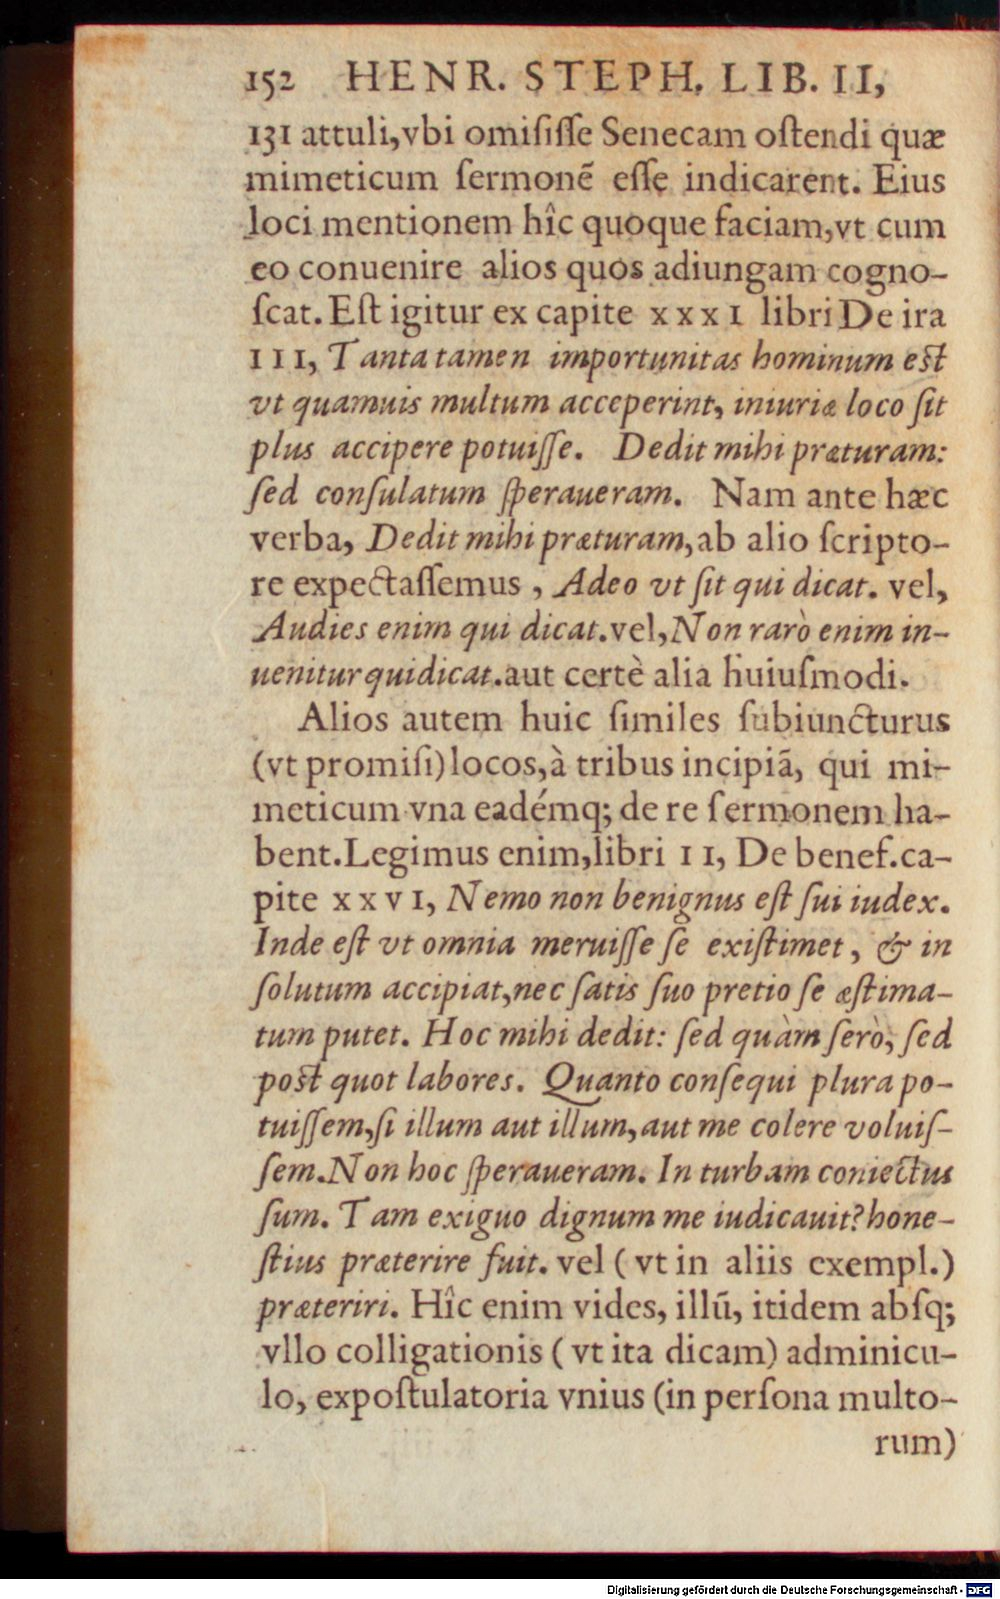 152 HENR. STEPH. LIB. II,
131 attuli,vbi omiſiſſe Senecam oſtendi quæ
mimeticum ſermonẽ eſſe indicarent. Eius
loci mentionem hîc quoque faciam,vt cum
eo conuenire alios quos adiungam cogno-
ſcat. Eſt igitur ex capite xxxI libri De ira
III, Tanta tamen importunitas hominum eſt
vt quamuis multum acceperint, iniuriæ loco ſit
plus accipere potuiſſe. Dedit mihi præturam:
ſed conſulatum ſperaueram. Nam ante hæc
verba, Dedit mihi præturam,ab alio ſcripto-
re expectaſſemus , Adeo vt ſit qui dicat. vel,
Audies enim qui dicat.vel,Non rarò enim in-
uenitur qui dicat.aut certè alia huiuſmodi.
Alios autem huic ſimiles ſubiuncturus
(vt promiſi) locos,à tribus incipiã, qui mi-
meticum vna eadémq; de re ſermonem ha-
bent.Legimus enim,libri II, De benef.ca-
pite xxvI, Nemo non benignus eſt ſui iudex.
Inde eſt vt omnia meruiſſe ſe exiſtimet , & in
ſolutum accipiat,nec ſatis ſuo pretio ſe æſtima-
tum putet. Hoc mihi dedit: ſed quàm ſerò, ſed
poſt quot labores. Quanto conſequi plura po-
tuiſſem,ſi illum aut illum,aut me colere voluiſ-
ſem.Non hoc ſperaueram. In turbam coniectus
ſum. Tam exiguo dignum me iudicauit?hone-
ſtius præterire fuit. vel ( vt in aliis exempl.)
præteriri. Hîc enim vides, illũ, itidem abſq;
vllo colligationis ( vt ita dicam) adminicu-
lo, expoſtulatoria vnius (in perſona multo-
rum)
Digitalisierung gefördert durch die Deutsche Forschungsgemeinschaft - DFG